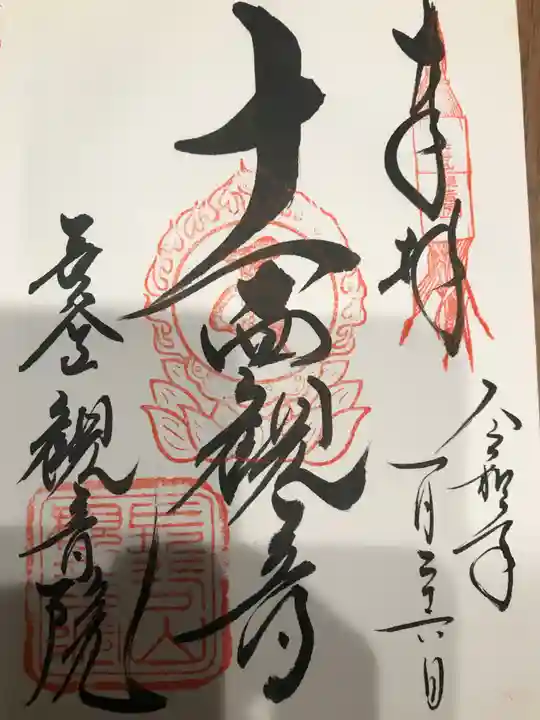 奉拝
令和二年
一月二十六日
十一面観音
長谷山
観音院